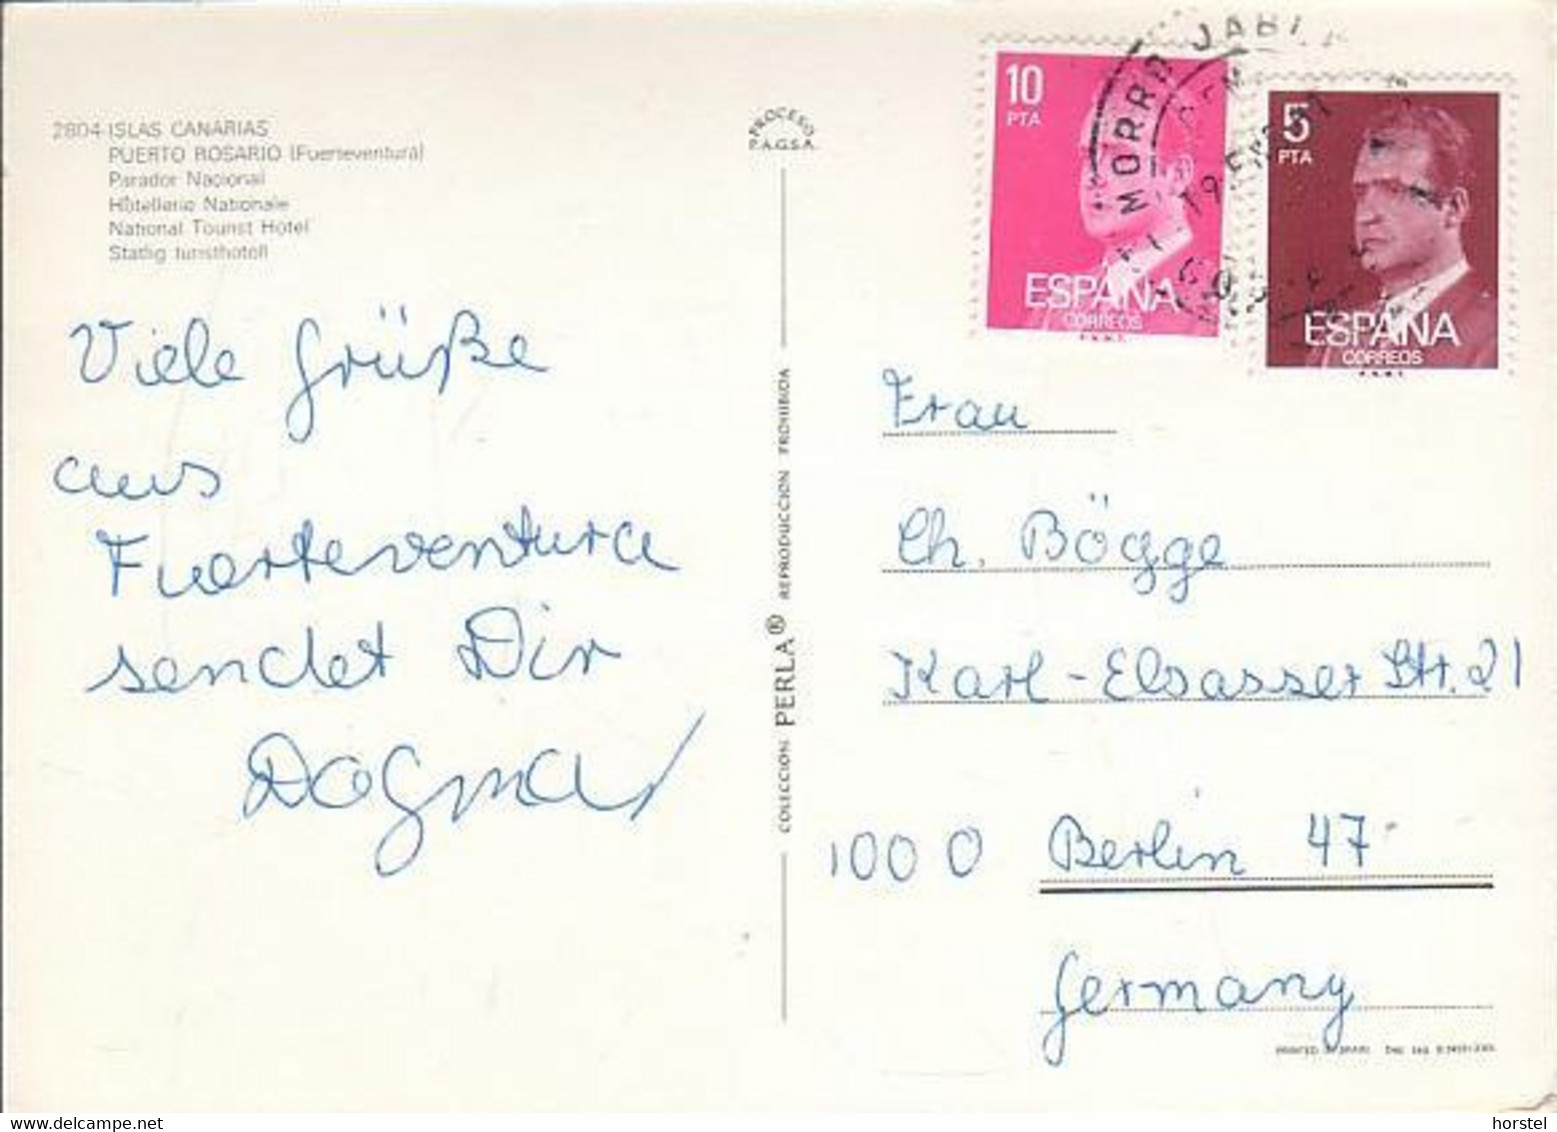 2804 ISLAS CANARIAS
PUERTO ROSARIO (Fuerteventura)
Parador Nacional
Hôtellerie Nationale
National Tourist Hotel
Statlig turisthotell
PROCESO
P.A.G.S.A.
Viele Grüße
aus
Fuerteventura
sendet Dir
Dagmar
COLECCION PERLA® REPRODUCCION PROHIBIDA
10
PTA
ESPAÑA
CORREOS
F.N.M.T.
5
PTA
ESPAÑA
CORREOS
F.N.M.T.
MORRO JABLE
Frau
Ch. Bögge
Karl-Elsasser Str. 21
1000 Berlin 47
Germany
PRINTED IN SPAIN
horstel